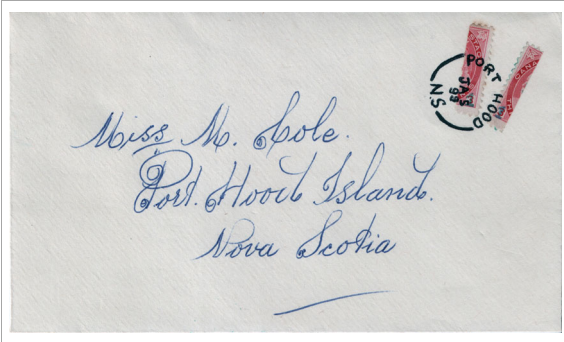 PORT HOOD
JA 5
99
N.S.
Miss M. Cole.
Port. Hood Island.
Nova Scotia